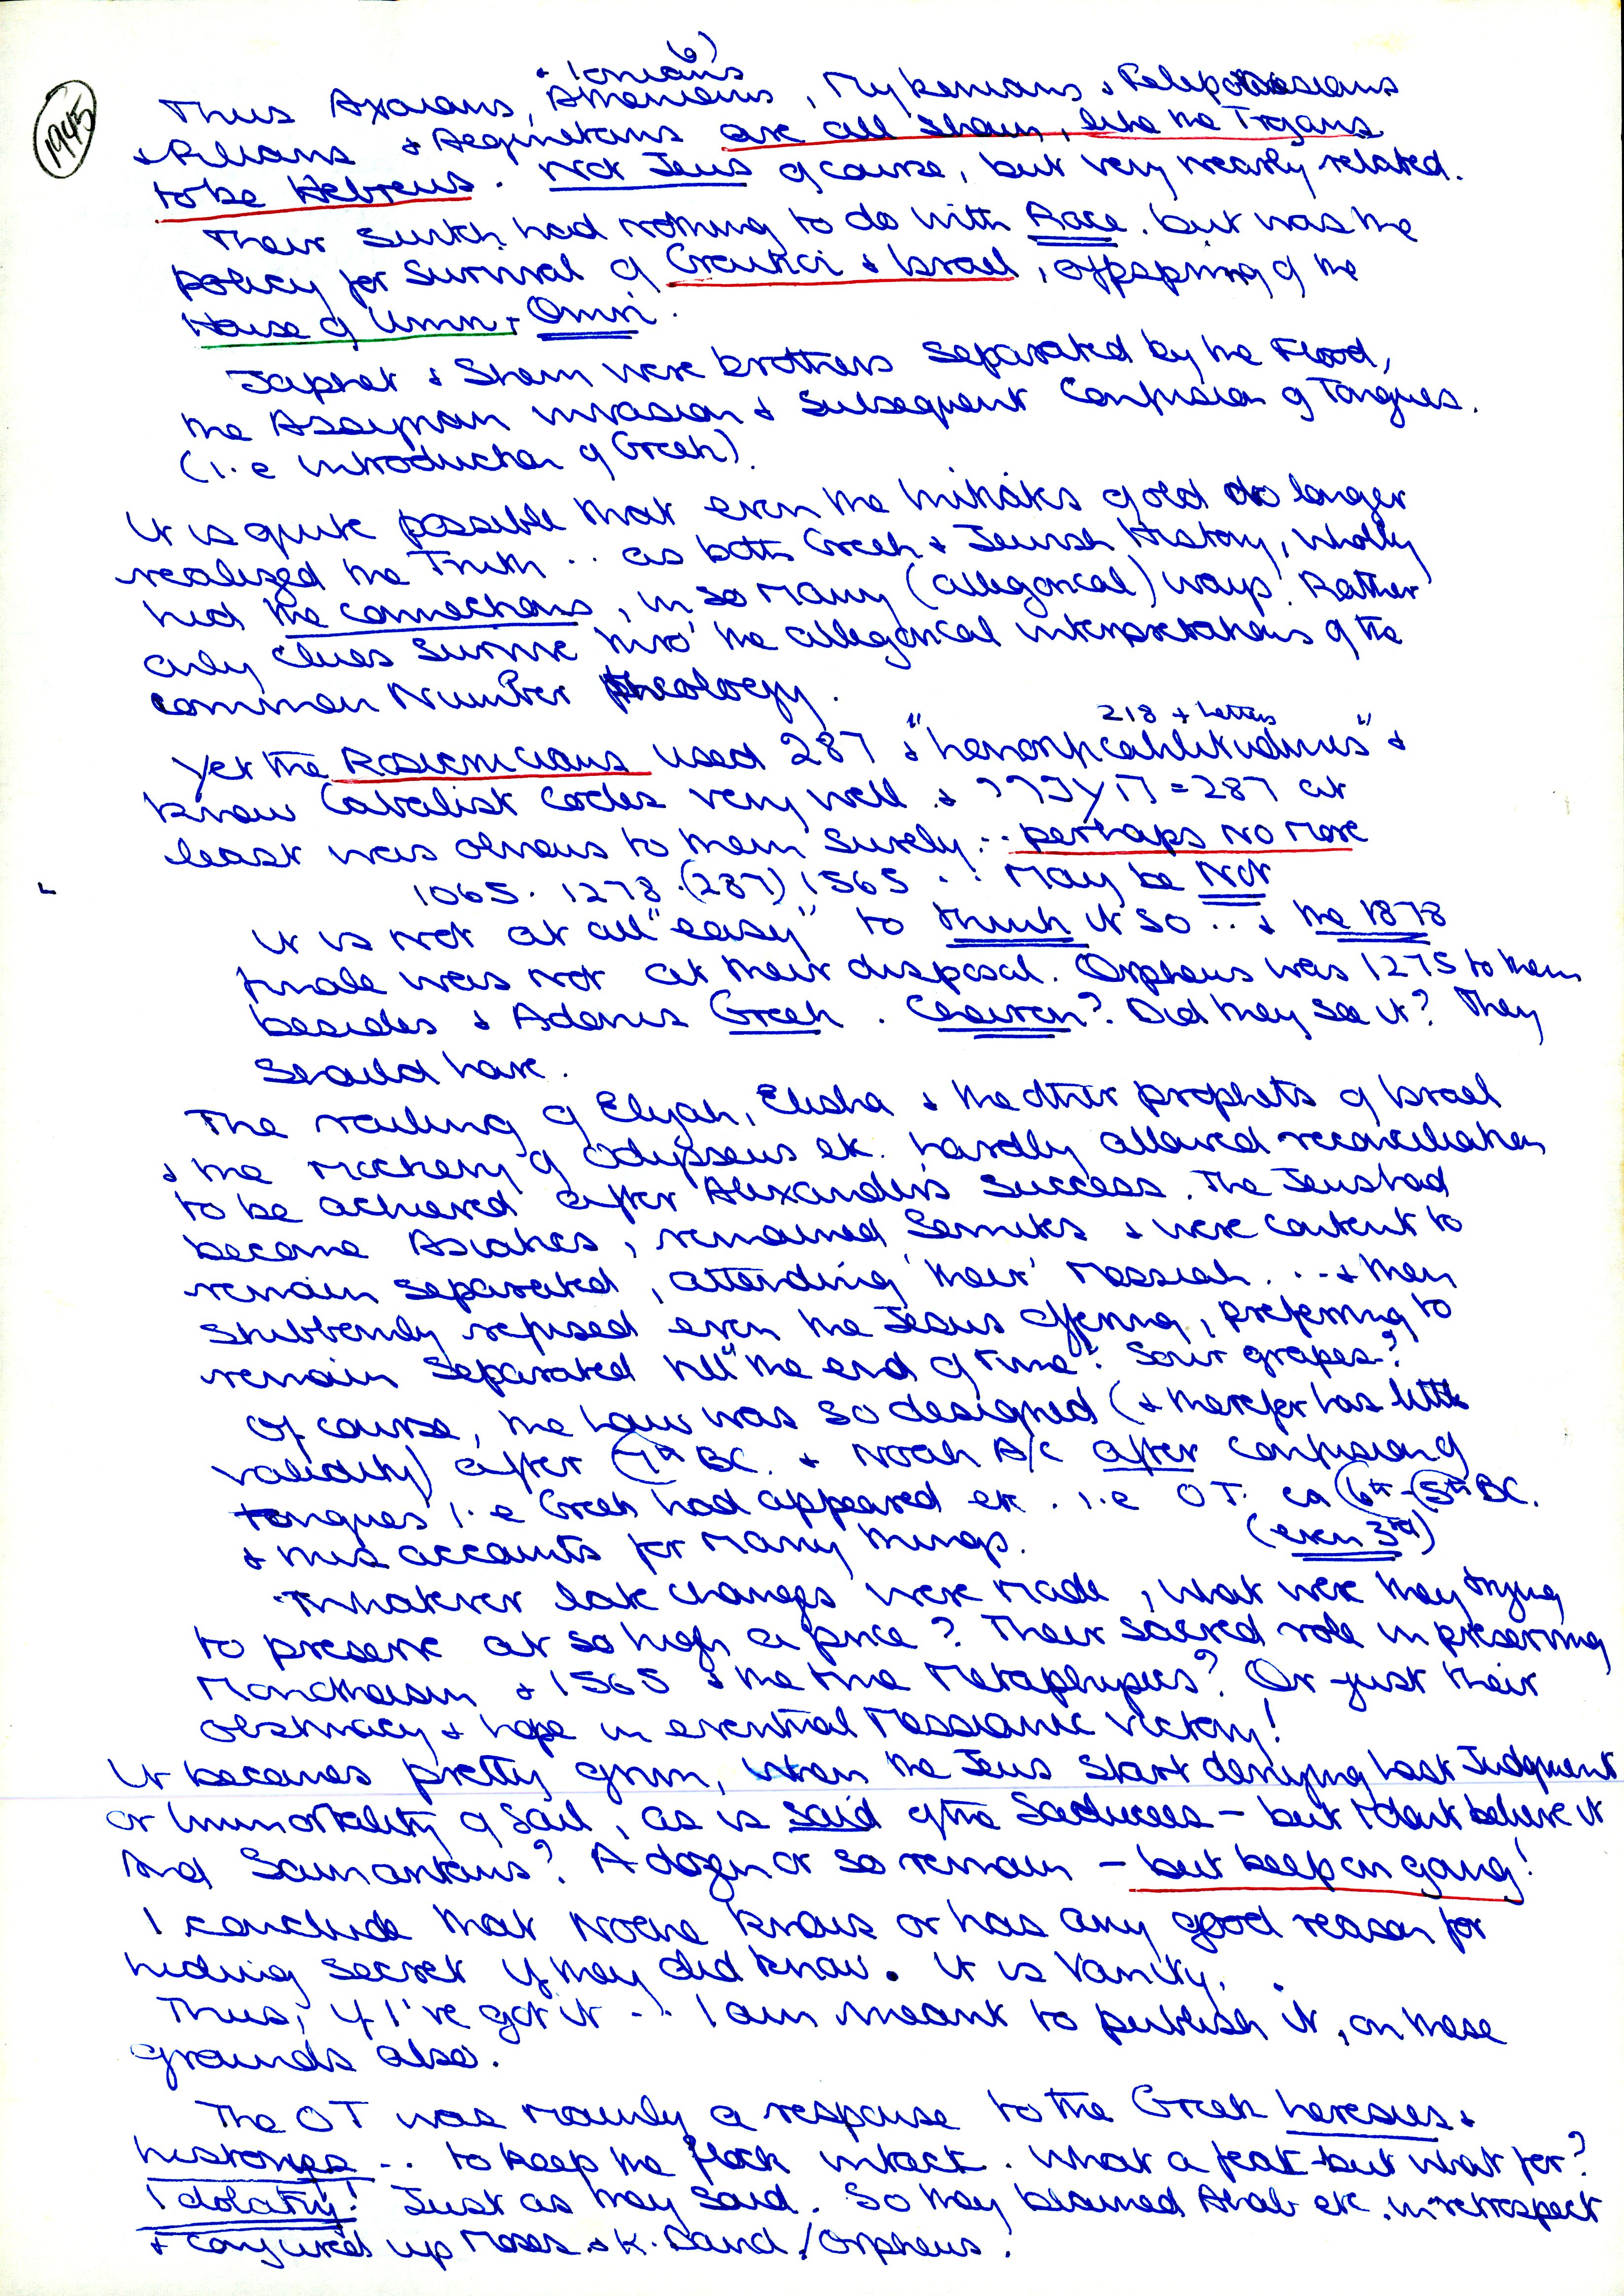 6)
1945
+ Ionians
Thus Axaians, Athenians, Mykenians & Peloponnesians
& Pylians & Aeginetans are all shown, like the Trojans
to be Hebreus. Not Jeus of course, but very nearly related.
Their switch had nothing to do with Race. but was the
policy for survival of &  Israel, offspring of the
House of Umri + Omri.
Japhet & Shem were brothers separated by the Flood,
the Assyrian invasion & subsequent Confusion of Tongues.
(i.e introduction of Greek).
It is quite possible that even the initiates of old no longer
realized the Truth .. as both Greek & Jewish History, wholly
hid the connections, in so many (allegorical) ways. Rather
only clues survive thro' the allegorical interpretations of the
common Number theology.
218 + letters
Yet the Rosicrucians used 287 & " " &
knew Cabalist Codes very well & = 287 at
least was obvious to them surely .. perhaps no more
1065. 1278. (287) 1565 .. May be Not
It is not at all "easy" to think it so .. & the 1878
finale was not at their disposal. Orpheus was 1275 to them
besides & Adonis Greek. Chairon? Did they see it? They
should have.
The railing of Elijah, Elisha & the other prophets of Israel
& the mockery of Odysseus etc. hardly allowed reconciliation
to be achieved after Alexander's success. The Jeus had
become Asiatics, remained Semites & were content to
remain separated, attending 'their' Messiah. .. & then
stubbornly refused even the Jesus offering, preferring to
remain separated till "the end of time". Sour grapes?
Of course, the Law was so designed (& therefor has little
validity) after 7th BC. & Noah A/c after confusion of
tongues i.e Greek had appeared etc. i.e OT. ca 6th-5th BC.
& this accounts for many things. (even 3rd)
Whatever late changes were made, what were they trying
to preserve at so high a price? Their sacred role in preserving
Monotheism & 1565 & the true Metaphysics? Or just their
obstinacy & hope in eventual Messianic victory!
It becomes pretty grim, when the Jeus start denying Last Judgment
or Immortality of Soul, as is said of the Saducees - but I dont believe it
And Samaritans? A dozen or so remain - but keep on going!
I conclude that Noone knows or has any good reason for
hiding secret if they did know. It is Vanity.
Thus, if I've got it .. I am meant to publish it, on these
grounds also.
The OT was mainly a response to the Greek heresies &
.. to keep the flock intact. What a feat - but what for?
Idolatry! Just as they said. So they blamed Ahab etc. in retrospect
& conjured up Moses & K. David / Orpheus.